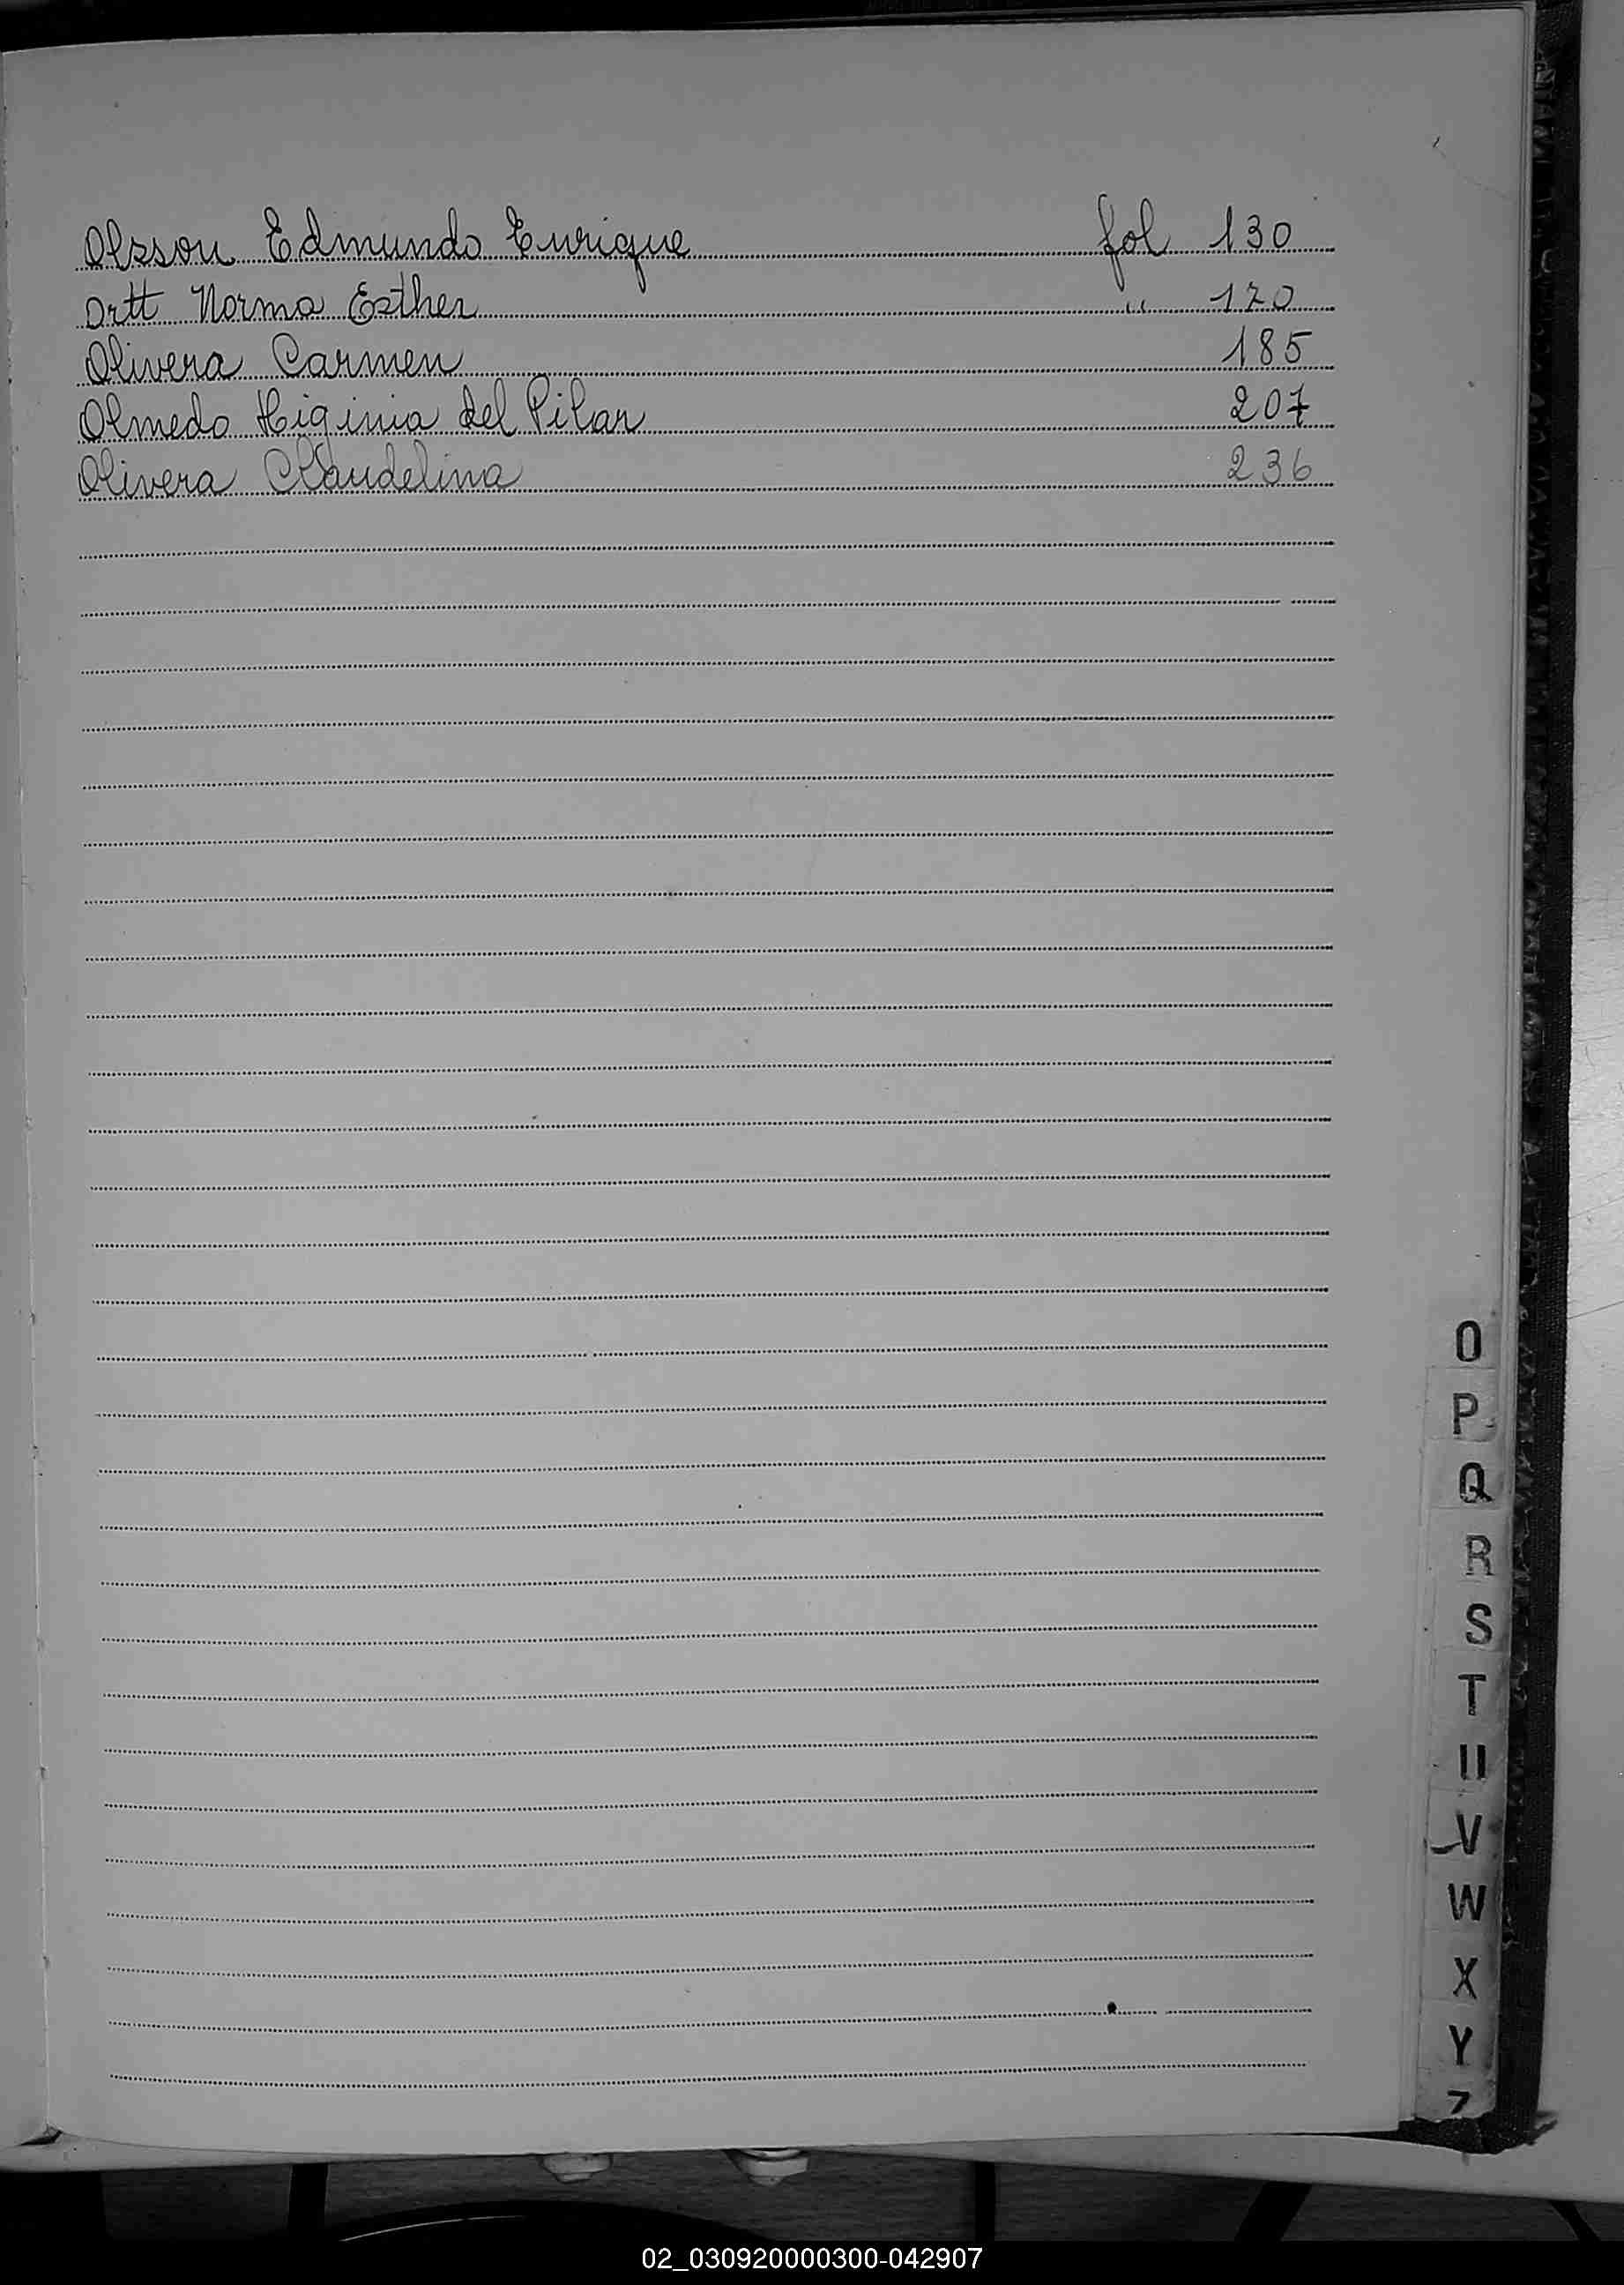 Olsson Edmundo Enrique fol 130
Ortt Norma Esther " 170
Olivera Carmen 185
Olmedo Higinia del Pilar 207
Olivera Claudelina 236
O
P
Q
R
S
T
U
V
W
X
Y
Z
02_030920000300-042907